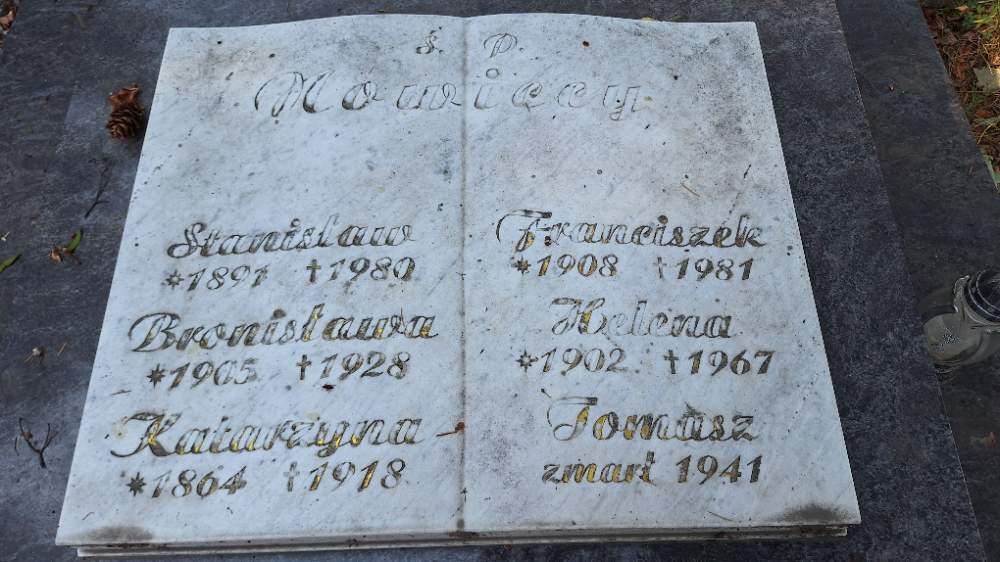 Ś. P.
Mówiccy
Stanisław
*1891 †1980
Bronisława
*1905 †1928
Katarzyna
*1864 †1918
Franciszek
*1908 †1981
Helena
*1902 †1967
Tomasz
zmarł 1941